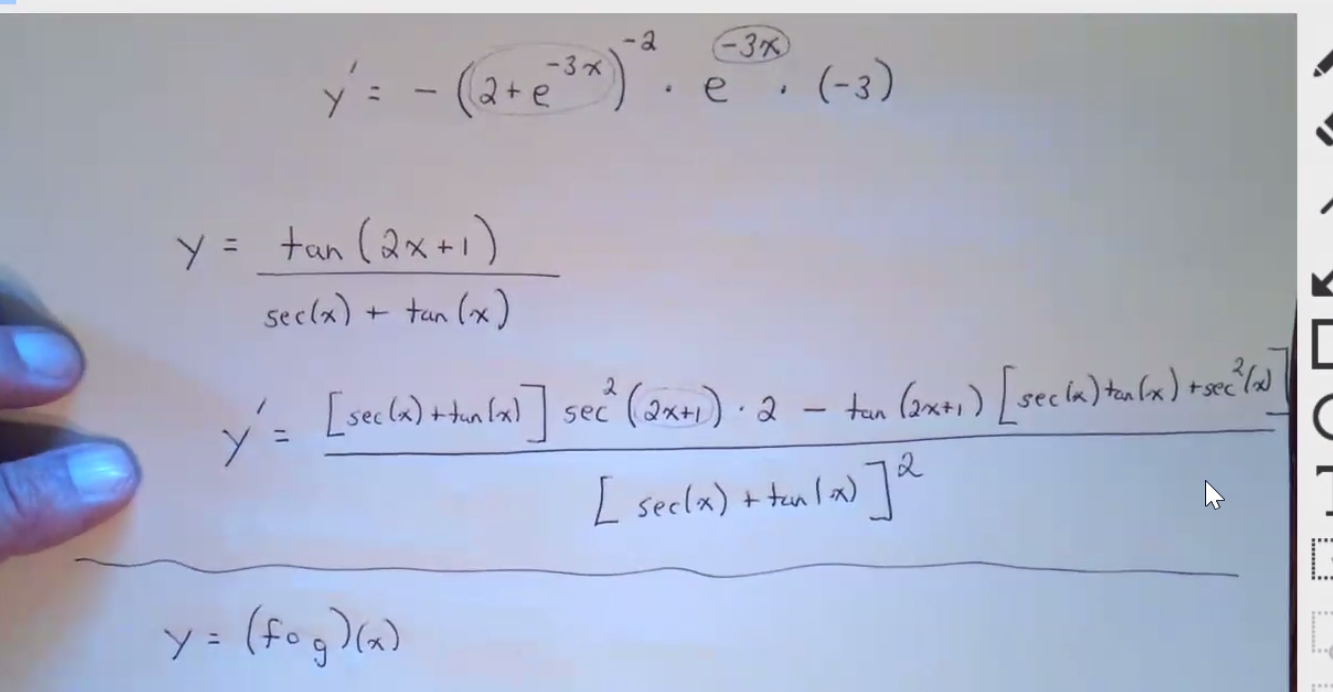 y' = - (2 + e^{-3x})^{-2} · e^{-3x} · (-3)
y = \frac{tan(2x+1)}{sec(x) + tan(x)}
y' = \frac{[sec(x) + tan(x)] sec^2(2x+1) · 2 - tan(2x+1) [sec(x)tan(x) + sec^2(x)]}{[sec(x) + tan(x)]^2}
y = (f∘g)(x)